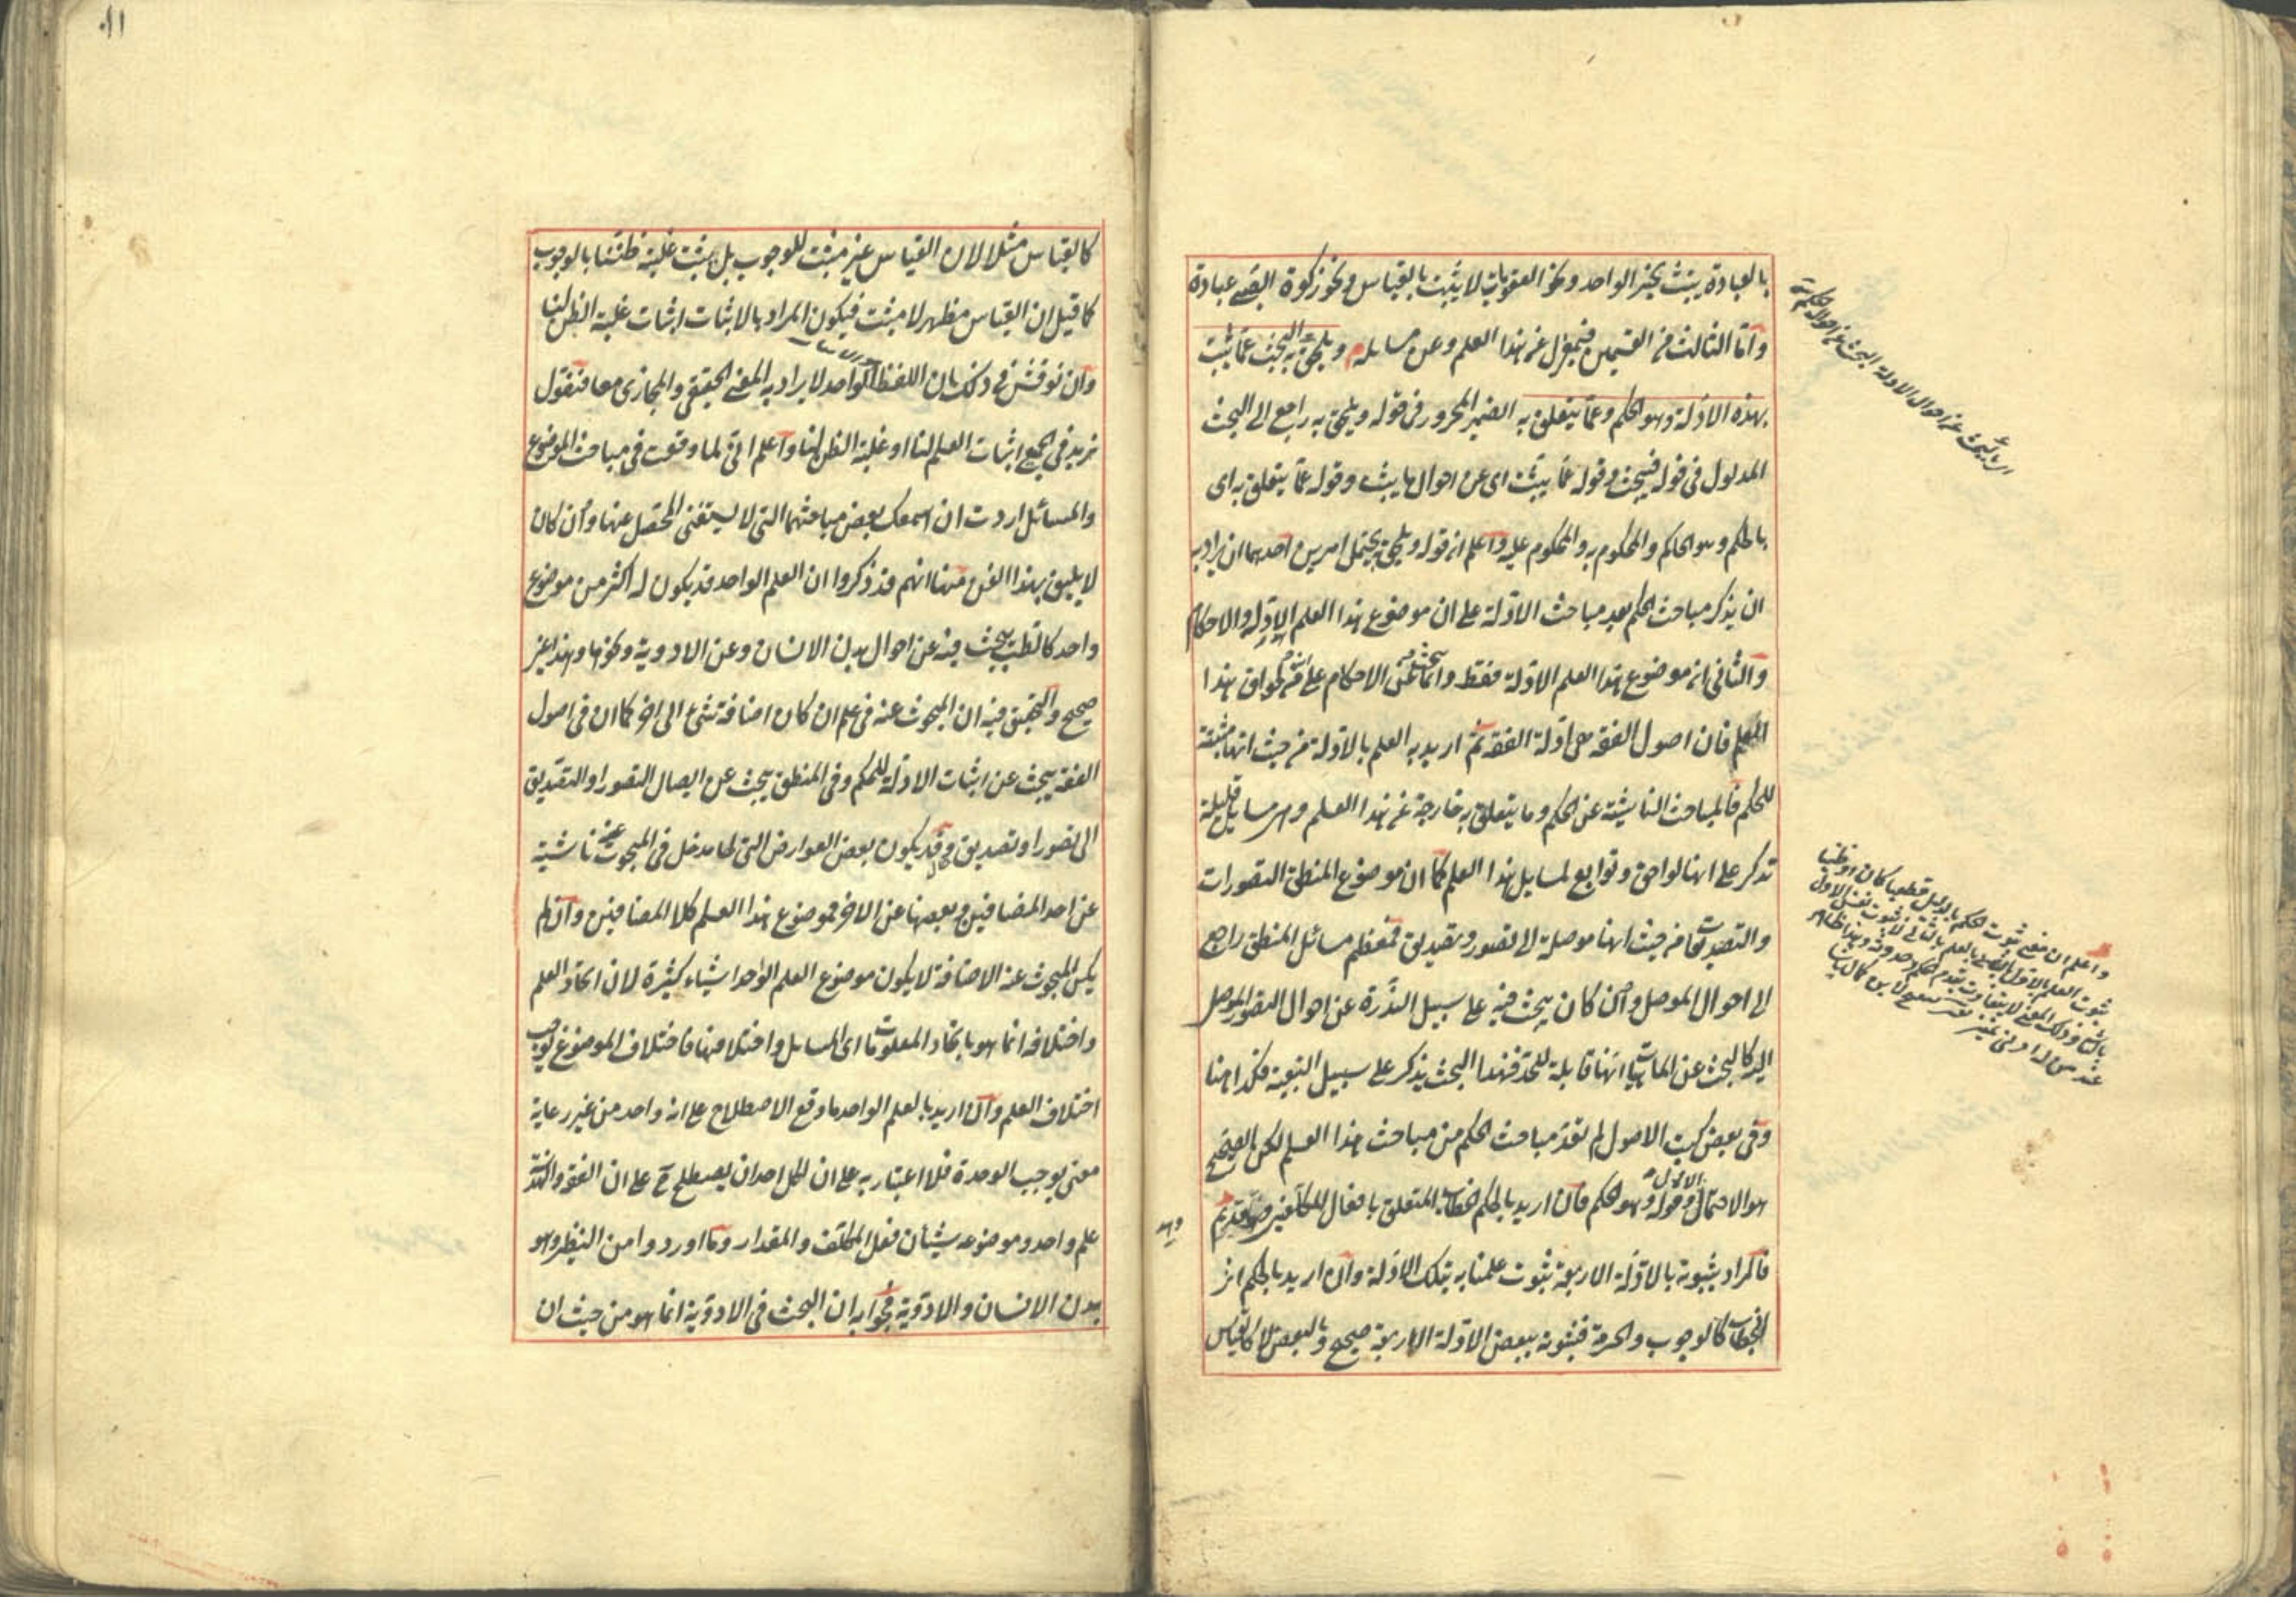 بالعبادة يثبت بخبر الواحد ونحو العقوبات لا يثبت بالقياس ونحو زكوة الصبي عبادة
واما الثالث من القسمين فبمعزل عن هذا العلم وعن مسايله ويلحق به البحث عما يثبت
بهذه الادلة وهو الحكم وعما يتعلق به الضمير المجرور في قوله ويلحق به راجع الى البحث
المدلول في قوله فيبحث وقوله عما يثبت اى عن احوال ما يثبت وقوله عما يتعلق به اى
بالحكم وهو الحاكم والمحكوم به والمحكوم عليه واعلم ان قوله ويلحق به يحتمل امرين احدهما ان يراد به
ان يذكر مباحث الحكم بعد مباحث الادلة على ان موضوع هذا العلم الادلة والاحكام
والثانى ان موضوع هذا العلم الادلة فقط وانما يبحث عن الاحكام على انه من لواحق هذا
العلم فان اصول الفقه هى ادلة الفقه ثم اريد به العلم بالادلة من حيث انها مثبتة
للحكم فالمباحث الناشية عن الحكم وما يتعلق به خارجة عن هذا العلم وهى مسايل قليلة
تذكر على انها لواحق وتوابع لمسايل هذا العلم كما ان موضوع المنطق التصورات
والتصديقات من حيث انها موصلة الى تصور وتصديق فمعظم مسائل المنطق راجع
الى احوال الموصل وان كان يبحث فيه على سبيل الندرة عن احوال التصور الموصل
اليه كالبحث عن الماهيات انها قابلة للحد فهذا البحث يذكر على سبيل التبعية فكذا هنا
وفى بعض كتب الاصول لم يعد مباحث الحكم من مباحث هذا العلم لكن الصحيح
هو الاحتمال الاول وقوله وهو الحكم فان اريد بالحكم الخطاب المتعلق بافعال المكلفين وهو قديم
فالمراد بثبوته بالادلة الاربعة ثبوت علمنا به بتلك الادلة وان اريد بالحكم اثر
الخطاب كالوجوب والحرمة فثبوته ببعض الادلة الاربعة صحيح وبالبعض لا كالقياس
واعلم ان معنى ثبوت الحكم بالدليل قطعيا كان او ظنيا
كالقياس مثلا لان القياس غير مثبت للوجوب بل يثبت غلبة ظننا بالوجوب
كما قيل ان القياس مظهر لا مثبت فيكون المراد بالاثبات اثبات غلبة الظن لنا
وان نوقش في ذلك بان اللفظ الواحد لا يراد به المعنى الحقيقى والمجازى معا فنقول
نريد في الجميع اثبات العلم لنا او غلبة الظن لنا واعلم انى لما وقعت في مباحث الموضوع
والمسائل اردت ان اسمعك بعض مباحثهما التى لا يستغنى المحصل عنها وان كان
لا يليق بهذا الفن منها انهم قد ذكروا ان العلم الواحد قد يكون له اكثر من موضوع
واحد كالطب يبحث فيه عن احوال بدن الانسان وعن الادوية ونحوها وهذا غير
صحيح والتحقيق فيه ان المبحوث عنه في علم ان كان اضافة شئ الى اخر كما ان في اصول
الفقه يبحث عن اثبات الادلة للحكم وفى المنطق يبحث عن ايصال التصور او التصديق
الى تصور او تصديق وقد يكون بعض العوارض التى لها مدخل فى المبحوث عنه ناشية
عن احد المضافين وبعضها عن الاخر فموضوع هذا العلم كلا المضافين وان لم
يكن المبحوث عنه الاضافة لا يكون موضوع العلم الواحد اشياء كثيرة لان اتحاد العلم
واختلافه انما هو باتحاد المعلومات اى المسايل واختلافها فاختلاف الموضوع يوجب
اختلاف العلم وان اريد بالعلم الواحد ما وقع الاصطلاح على انه واحد من غير رعاية
معنى يوجب الوحدة فلا اعتبار به على ان لكل احد ان يصطلح ح على ان الفقه والهندسة
علم واحد وموضوعه شيئان فعل المكلف والمقدار وما اوردوا من النظير وهو
بدن الانسان والادوية فجوابه ان البحث فى الادوية انما هو من حيث ان